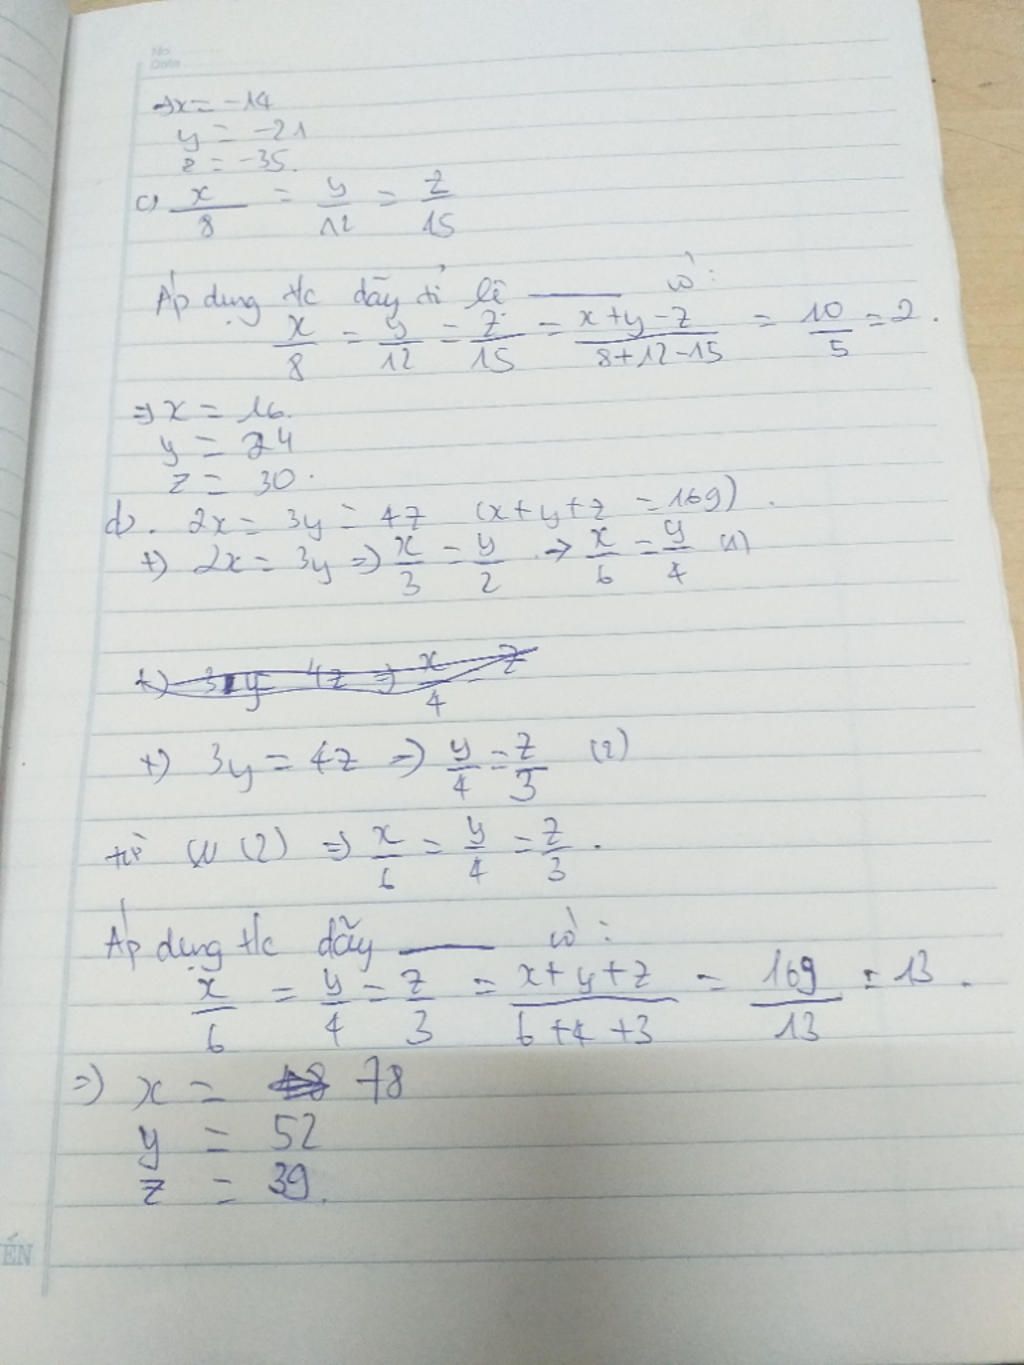 No
Date
=> x = -14
y = -21
z = -35.
c) x/8 = y/12 = z/15
Áp dụng t/c dãy tỉ lệ —— có:
x/8 = y/12 = z/15 = (x+y-z)/(8+12-15) = 10/5 = 2.
=> x = 16.
y = 24
z = 30.
d. 2x = 3y = 4z (x+y+z = 169).
+) 2x = 3y => x/3 = y/2 => x/6 = y/4 (1)
+) 3y = 4z => y/4 = z/3 (2)
từ (1) (2) => x/6 = y/4 = z/3.
Áp dụng t/c dãy —— có:
x/6 = y/4 = z/3 = (x+y+z)/(6+4+3) = 169/13 = 13.
=> x = 78
y = 52
z = 39.
ÉN